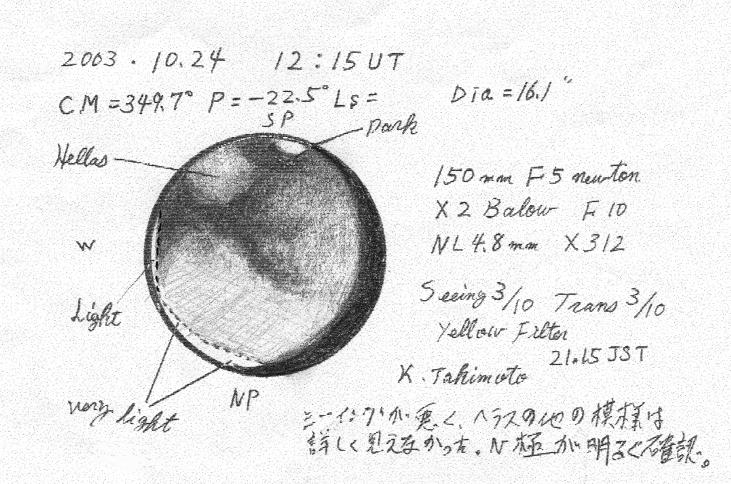 2003.10.24 12:15UT
CM=349.7° P=-22.5° Ls=
Dia=16.1"
SP
Dark
Hellas
150mm F5 newton
X2 Balow F10
W
NL4.8mm X312
Light
Seeing 3/10 Trans 3/10
Yellow Filter
21.15 JST
K. Takimoto
NP
very light
シーイングが悪く、ヘラスの他の模様は
詳しく見えなかった。N極が明るく確認。